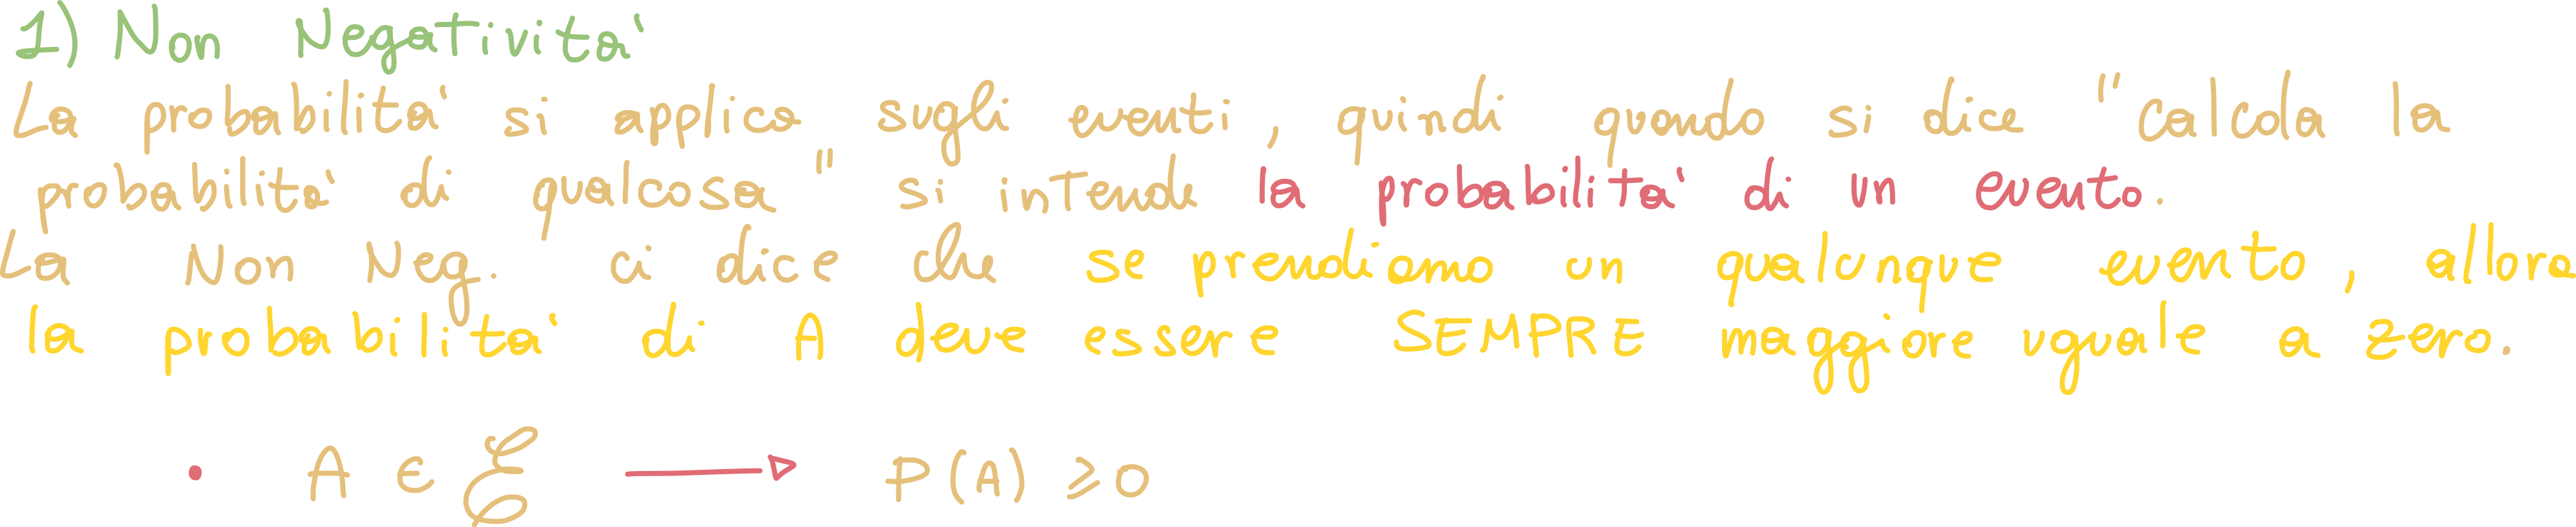 1) Non Negatività
La probabilità si applica sugli eventi, quindi quando si dice "calcola la
probabilità di qualcosa" si intende la probabilità di un evento.
La Non Neg. ci dice che se prendiamo un qualunque evento, allora
la probabilità di A deve essere SEMPRE maggiore uguale a zero.
• A ∈ ℰ → P(A) ≥ 0